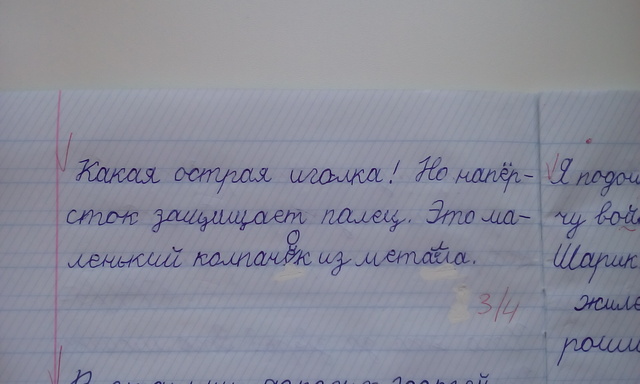 Какая острая иголка! Но напёр-
сток защищает палец. Это ма-
ленький колпачок из метала.
3/4
Я подош
чу вой
Шарик
жиле